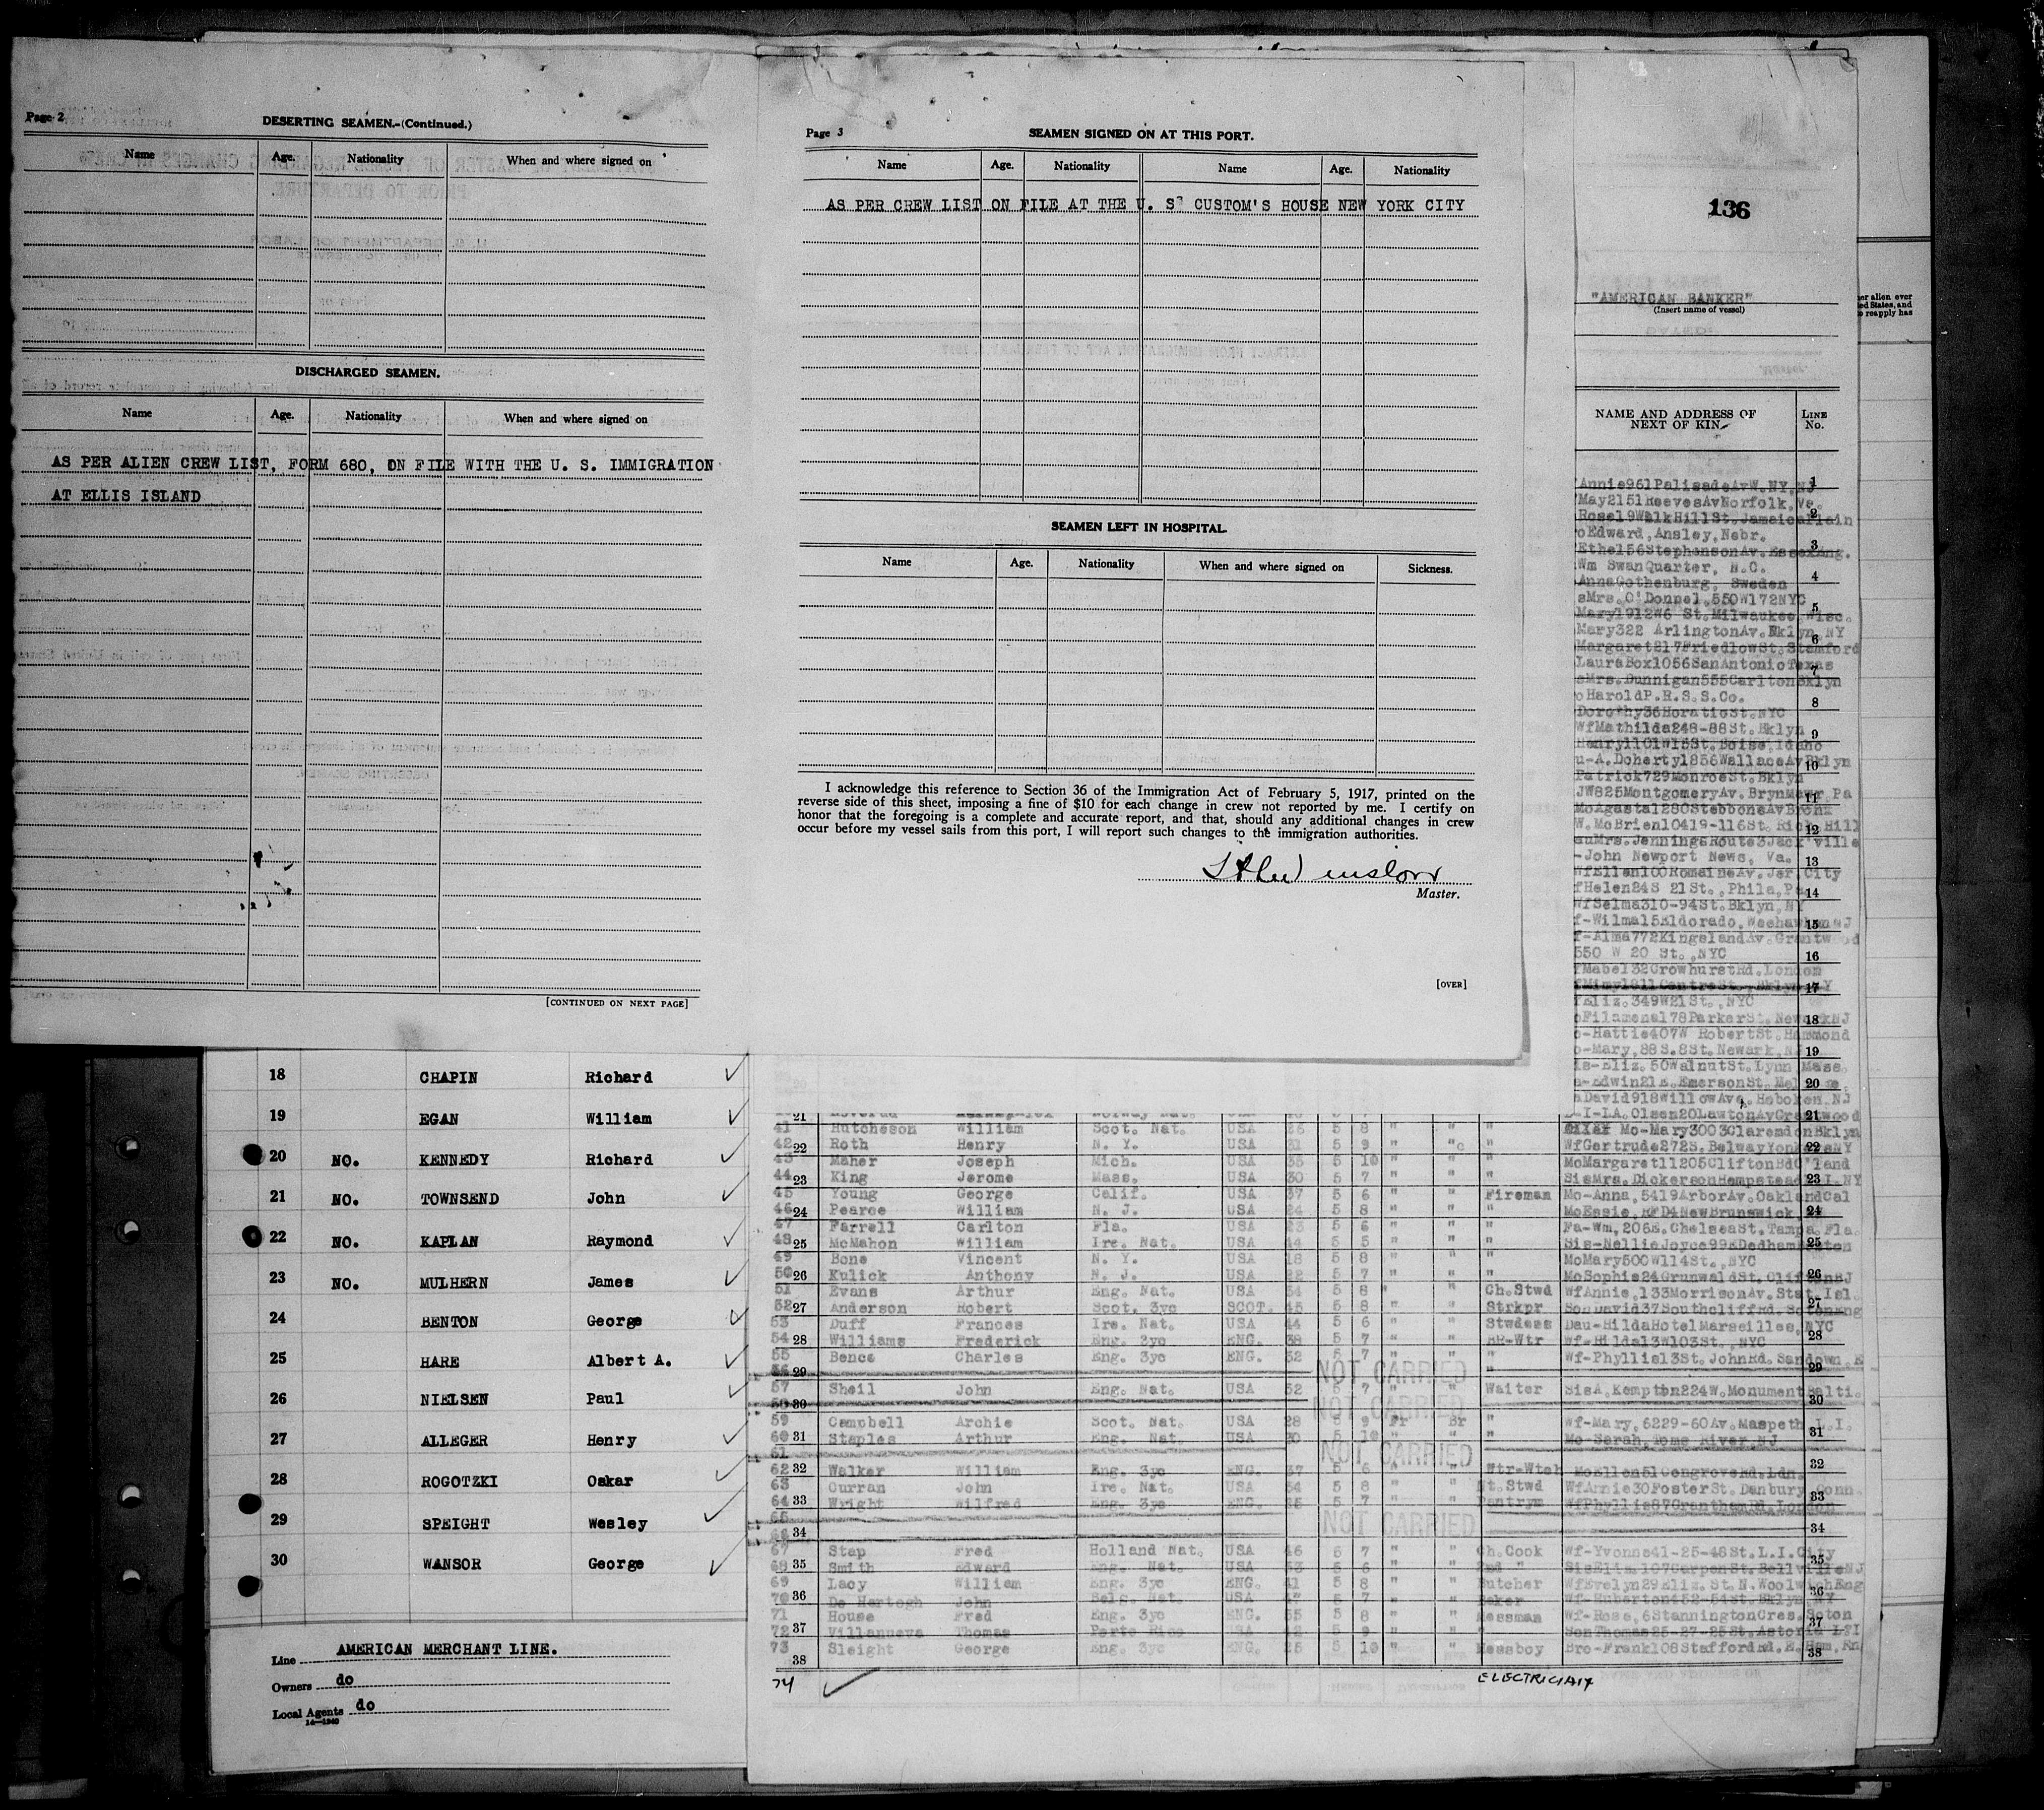 Page 2
DESERTING SEAMEN.-(Continued.)
Name Age. Nationality When and where signed on
DISCHARGED SEAMEN.
Name Age. Nationality When and where signed on
AS PER ALIEN CREW LIST, FORM 680, ON FILE WITH THE U. S. IMMIGRATION
AT ELLIS ISLAND
[CONTINUED ON NEXT PAGE]
Page 3
SEAMEN SIGNED ON AT THIS PORT.
Name Age. Nationality Name Age. Nationality
AS PER CREW LIST ON FILE AT THE U. S CUSTOM'S HOUSE NEW YORK CITY
SEAMEN LEFT IN HOSPITAL.
Name Age. Nationality When and where signed on Sickness.
I acknowledge this reference to Section 36 of the Immigration Act of February 5, 1917, printed on the
reverse side of this sheet, imposing a fine of $10 for each change in crew not reported by me. I certify on
honor that the foregoing is a complete and accurate report, and that, should any additional changes in crew
occur before my vessel sails from this port, I will report such changes to the immigration authorities.
Master.
[OVER]
136
"AMERICAN BANKER"
(Insert name of vessel)
her alien ever
ed States, and
o reapply has
NAME AND ADDRESS OF
NEXT OF KIN
LINE
No.
Annie961PalisadeAvW.NY,NJ 1
May2151ReevesAvNorfolk,Va.
Rose19WalkHillSt.JamaicaPlain 2
Edward,Ansley,Nebr.
Ethel56StephensonAv.EssexEng. 3
Wm SwanQuarter, N.C.
AnnaGothenburg, Sweden 4
sMrs.O'Donnel,550W172NYC
Mary1912W6 St.Milwaukee,Wisc. 5
Mary322 ArlingtonAv.Bklyn,NY
Margaret217FriedlowSt.Stamford 6
LauraBox1056SanAntonioTexas
sMrs.Dunnigan555CarltonBklyn 7
HaroldP.R.S.S.Co.
Dorothy36HoratioSt.NYC 8
WfMathilda248-88St.Bklyn
Henry1101W15St.Boise,Idaho 9
u-A.Doherty1856WallaceAvBklyn
Patrick729MonroeSt.Bklyn 10
JW825MontgomeryAv.BrynMawr Pa
MoAgasta1280StebbonsAvBronx 11
W.McBrien10419-116St.Rich Hill
Mrs.JenningsRoute3Jack'ville 12
-John Newport News, Va.
WfEllen100RomaineAv.Jer.City 13
fHelen24S 21St.,Phila,Pa
WfSelma310-94St.Bklyn,NY 14
f-Wilma15Eldorado,WeehawkenNJ
f-Alma772KingslandAv.Grantwood 15
550 W 20 St.,NYC
fMabel32CrowhurstRd.London 16
17
fEliz.349W21St.,NYC
oFilamena178ParkerSt.NewarkNJ 18
o-Hattie407W RobertSt.Hammond
o-Mary,88S.8St.Newark,NJ 19
is-Eliz.50WalnutSt.Lynn Mass.
-Edwin21E.EmersonSt.Mel 20
David918WillowAve.Hoboken,NJ
I-LA.Olsen20LawtonAvGrantwood 21
18 CHAPIN Richard
19 EGAN William
20 NO. KENNEDY Richard
21 NO. TOWNSEND John
22 NO. KAPLAN Raymond
23 NO. MULHERN James
24 BENTON George
25 HARE Albert A.
26 NIELSEN Paul
27 ALLEGER Henry
28 ROGOTZKI Oskar
29 SPEIGHT Wesley
30 WANSOR George
Line AMERICAN MERCHANT LINE.
Owners do
Local Agents do
14-1240
21
41 Hutcheson William Scot. Nat. USA 25 5 8 " " " Mo-Mary3003ClarendonBklyn
42 22 Roth Henry N. Y. USA 21 5 9 " " " WfGertrude272S.BelwayYonkersNY 22
43 Maher Joseph Mich. USA 35 5 10 " " " MoMargaret11205CliftonBdC'land
44 23 King Jerome Mass. USA 30 5 7 " " " SisMrs.DickersonHempstead L.I.NY 23
45 Young George Calif. USA 37 5 6 " " Fireman Mo-Anna,5419ArborAv.OaklandCal
46 24 Pearce William N. J. USA 24 5 8 " " " MoEssie,RFD4NewBrunswick 24
47 Farrell Carlton Fla. USA 23 5 6 " " " Fa-Wm,206E.ChelseaSt,Tampa Fla.
48 25 McMahon William Ire. Nat. USA 44 5 5 " " " Sis-NellieJoyce99EDedham 25
49 Bone Vincent N. Y. USA 18 5 8 " " " MoMary500W114St.,NYC
50 26 Kulick Anthony N. J. USA 22 5 7 " " " MoSophie24GrunwaldSt.CliftonNJ 26
51 Evans Arthur Eng. Nat. USA 54 5 8 " " Ch.Stwd WfAnnie,133MorrisonAv.Stat.Isl.
52 27 Anderson Robert Scot. 3yc SCOT. 45 5 8 " " Strkpr SonDavid37SouthcliffRd.SotonEng 27
53 Duff Frances Ire. Nat. USA 44 5 6 " " Stwdess Dau-HildaHotelMarseilles,NYC
54 28 Williams Frederick Eng. 3yc ENG. 38 5 7 " " BR-Wtr Wf-Hilda13W103St.,NYC 28
55 Bence Charles Eng. 3yc ENG. 32 5 7 " " " Wf-Phyllis13St.JohnRd.Sandown,E
56 29 NOT CARRIED 29
57 Sheil John Eng. Nat. USA 52 5 7 " " Waiter SisA.Kempton224W.MonumentBalti.
58 30 NOT CARRIED 30
59 Campbell Archie Scot. Nat. USA 28 5 9 Br Br " Wf-Mary,6229-60Av.Maspeth L.I.
60 31 Staples Arthur Eng. Nat. USA 20 5 10 " " " Mo-Sarah,Toms River,NJ 31
61 NOT CARRIED
62 32 Walker William Eng. 3yc ENG. 37 5 6 " " Wtr-Wtch MoEllen51CongroveRd.Ldn. 32
63 Curran John Ire. Nat. USA 54 5 8 " " Nt.Stwd WfAnnie30FosterSt.Danbury Conn.
64 33 Wright Wilfred Eng. 3yc ENG. 35 5 7 " " Pantrym WfPhyllis87GranthamRd.London 33
65 NOT CARRIED
66 34 34
67 Stap Fred Holland Nat. USA 46 5 7 " " Ch.Cook Wf-Yvonne41-25-48St.L.I.City
68 35 Smith Edward Eng. Nat. USA 53 5 6 " " 2nd " SisElla.107CarpenSt.BellvilleNJ 35
69 Lacy William Eng. 3yc ENG. 41 5 8 " " Butcher WfEvelyn29Eliz.St.N.WoolwichEng
70 36 De Hartogh John Belg. Nat. USA 47 5 7 " " Baker Wf-Huberton452-54St.Bklyn,NY 36
71 House Fred Eng. 3yc ENG. 55 5 8 " " Messman Wf-Rose,6StanningtonCres.Soton
72 37 Villanueva Thomas Porto Rico USA 42 5 9 " " " SonThomas25-27-25St.Astoria LI 37
73 Sleight George Eng. 3yc ENG. 25 5 10 " " Messboy Bro-Frank108StaffordRd.E.Ham,En
38 38
74 ELECTRICIAN